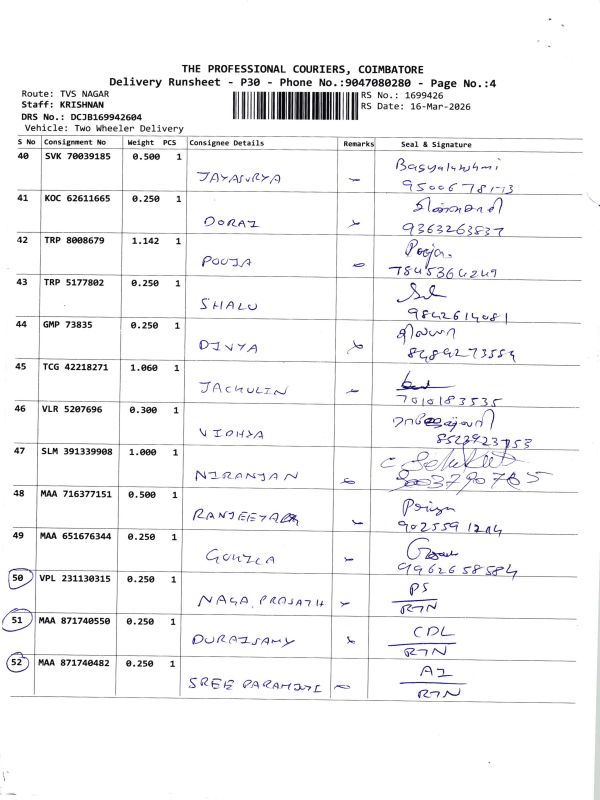 THE PROFESSIONAL COURIERS, COIMBATORE
Delivery Runsheet - P30 - Phone No.:9047080280 - Page No.:4
Route: TVS NAGAR
RS No.: 1699426
Staff: KRISHNAN
RS Date: 16-Mar-2026
DRS No.: DCJB169942604
Vehicle: Two Wheeler Delivery
S No Consignment No Weight PCS Consignee Details Remarks Seal & Signature
40 SVK 70039185 0.500 1
JAYASURYA
41 KOC 62611665 0.250 1
DORAI 9363263837
42 TRP 8008679 1.142 1 Pooja.
POOJA 7845364249
43 TRP 5177802 0.250 1
SHALU 9842614081
44 GMP 73835 0.250 1
DIVYA 8489273554
45 TCG 42218271 1.060 1
JACKULIN 7010183535
46 VLR 5207696 0.300 1
VIDHYA
47 SLM 391339908 1.000 1
NIRANJAN
48 MAA 716377151 0.500 1 Priya
RANJEETA
49 MAA 651676344 0.250 1
9962658584
50 VPL 231130315 0.250 1 PS
NAGA. PRASATH RTN
51 MAA 871740550 0.250 1 CDL
DURAISAMY RTN
52 MAA 871740482 0.250 1 AI
SREE RTN